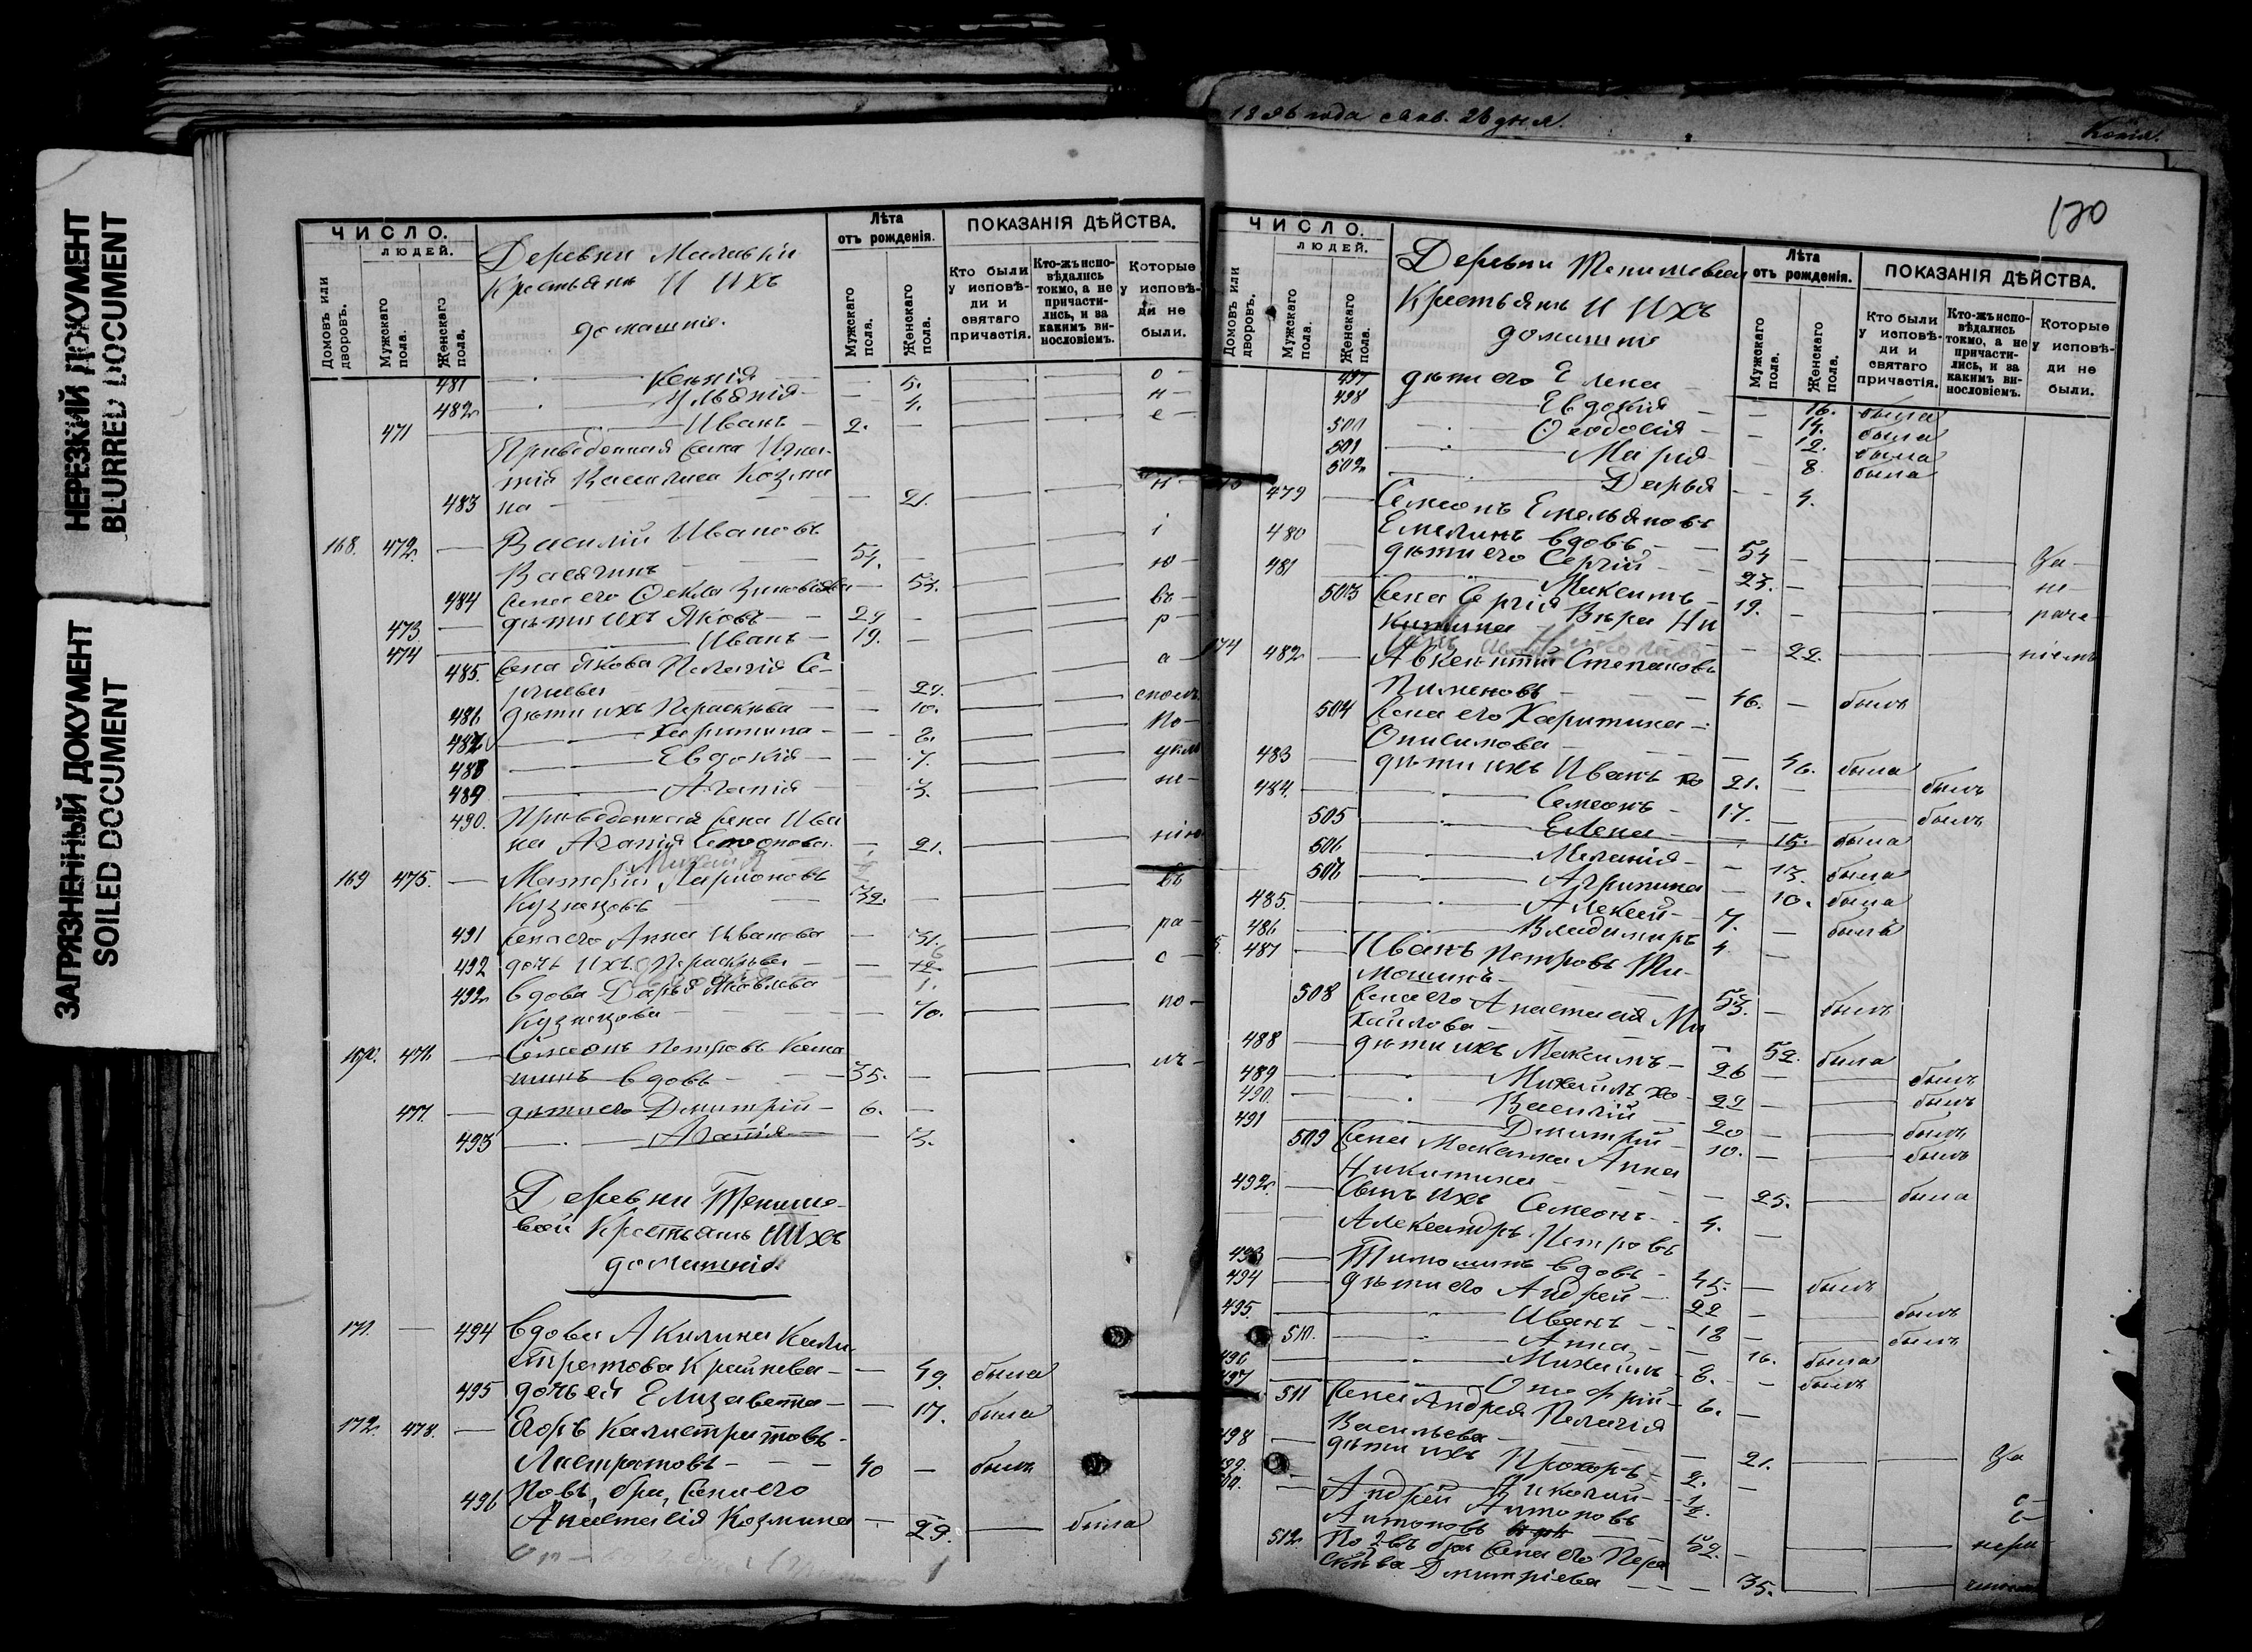 НЕРЕЗКИЙ ДОКУМЕНТ
BLURRED DOCUMENT
ЗАГРЯЗНЕННЫЙ ДОКУМЕНТ
SOILED DOCUMENT
ЧИСЛО.
ЛЮДЕЙ.
Домовъ или дворовъ.
Мужскаго пола.
Женскаго пола.
Деревни
Крестьянъ и ихъ
домашніе.
Лѣта
отъ рожденія.
Мужскаго пола.
Женскаго пола.
ПОКАЗАНІЯ ДѢЙСТВА.
Кто были у исповѣди и святаго причастія.
Кто-жъ исповѣдались токмо, а не причастились, и за какимъ винословіемъ.
Которые у исповѣди не были.
481 Ксенія 5. о
482 Ульянія 4. н
471 Иванъ 2. е
Приведенная жена Игна-
тія Василиса Козми
483 на 21. н
168. 472 Василій Ивановъ і
54.
484 жена его Ѳекла Зиновьева 53. ю
473 дѣти ихъ Яковъ 29 въ
474 Иванъ 19. р
485. жена Якова Пелагія Се- а
ргіева 27.
486 дѣти ихъ Параскева 10.
487 Харитина 8. по
488 Евдокія 7.
489 Агапія 3. не
490. Приведенная жена Ива
на Агапія Семенова 21. нію
169 475. Ларіоновъ въ
Кузнецовъ 32.
491 жена его Анна Иванова 31. ра
492 дочь ихъ Параскева с
492 вдова Дарья Яковлева
Кузнецова 70. по
170. 476 Семенъ Петровъ
вдовъ 35.
477. дѣти его Димитрій 6.
493 Агапія 3.
Деревни Тенише-
вой Крестьянъ и Ихъ
домашніе
171. 494 вдова Акилина Кали-
стратова Крайнева 49. была
495 дочь ея Елизавета 17. была
172. 478. Егоръ Калистратовъ
Листратовъ 40 былъ
496 Повъ, бра, жена его
Анастасія Козмина 29. была
1896 года Янв. 26 дня.
Копія.
170
ЧИСЛО.
ЛЮДЕЙ.
Домовъ или дворовъ.
Мужскаго пола.
Женскаго пола.
Деревни Тенишевой
Крестьянъ и ихъ
домашніе
Лѣта
отъ рожденія.
Мужскаго пола.
Женскаго пола.
ПОКАЗАНІЯ ДѢЙСТВА.
Кто были у исповѣди и святаго причастія.
Кто-жъ исповѣдались токмо, а не причастились, и за какимъ винословіемъ.
Которые у исповѣди не были.
497 дѣти его Елена 16. была
498 Евдокія 14. была
500 Ѳеодосія 12. была
501 Марія 8. была
502 Дарья 4.
479 Семенъ Емельяновъ
Емелинъ вдовъ 54 За
480 дѣти его Сергій 23. не
481 Максимъ 19. раче
503 жена Сергія Вѣра Ни
китина 22. ніемъ
174 482 Авксентій Степановъ
Пименовъ 46. былъ
504 жена его Харитина
Онисимова 46. была
483 дѣти ихъ Иванъ хо 21. былъ
484. Семенъ 17. былъ
505 Елена 15. была
506 Меланія 13. была
506 Агрипина 10. была
485. Алексѣй 7. былъ
486 Владимиръ 4
487 Иванъ Петровъ Ти-
мошинъ 53. былъ
508 жена его Анастасія Ми
хайлова 52. была
488 дѣти ихъ Максимъ 26 былъ
489 Михаилъ хо 22 былъ
490. Василій 20 былъ
491 Дмитрій 10. былъ
509 жена Максима Анна
Никитина 25. была
492. Сынъ ихъ Семенъ 4.
Александръ Петровъ
493 Тимошинъ вдовъ 45. былъ
494 дѣти его Андрей 22 былъ
495. Иванъ 18 былъ
510. Анна 16. была
496 Михаилъ 8. былъ
497 Онофрій 6.
511 жена Андрея Пелагія
Васильева 21. За
498 дѣти ихъ Прохоръ 2.
499. Николай 1/2.
500. Андрей Антоновъ с
Антоновъ 52. с
512 По 2 въ бра жена его Пара
скева Дмитріева 35.